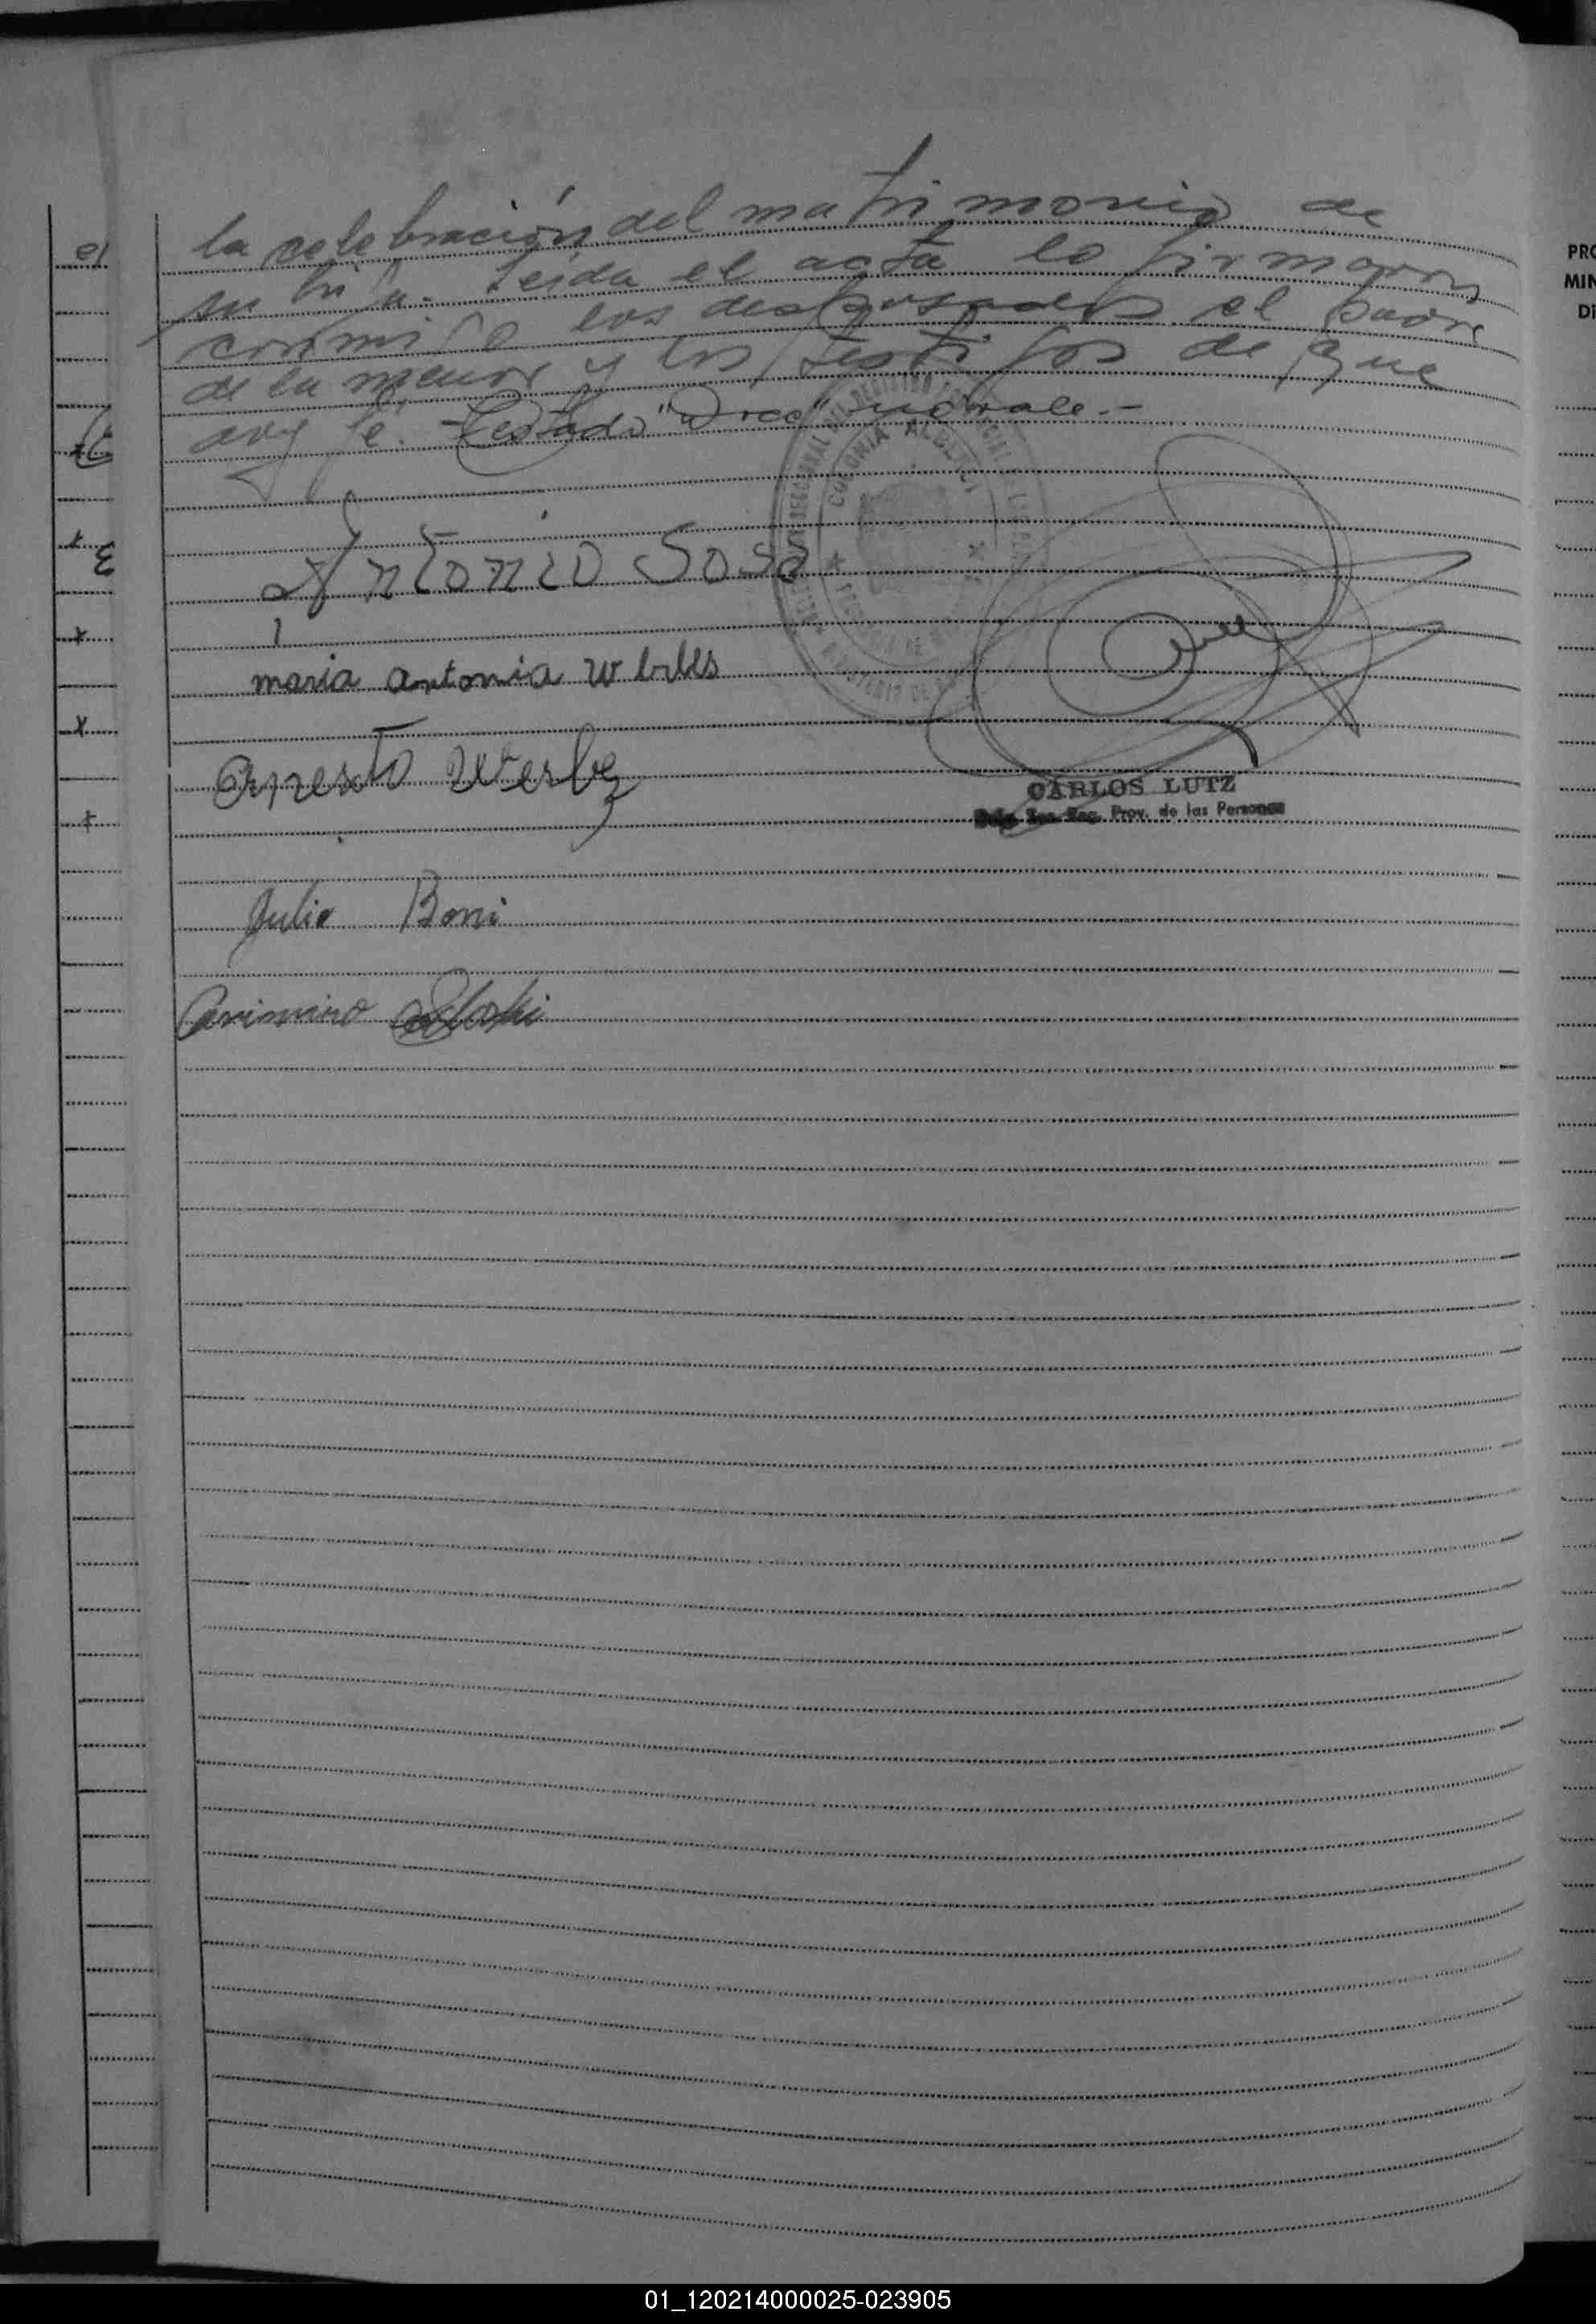 la celebración del matrimonio de
su hija. Leida el acta la firmaron
conmigo los desposados el padre
de la menor y los testigos de que
doy fé. Testado no vale.-
Antonio Sosa
maria antonia
Ernesto
Julio Boni
CARLOS LUTZ
Prov. de las Personas
COLONIA ALBERDI
el
PRO
MIN
DI
01_120214000025-023905